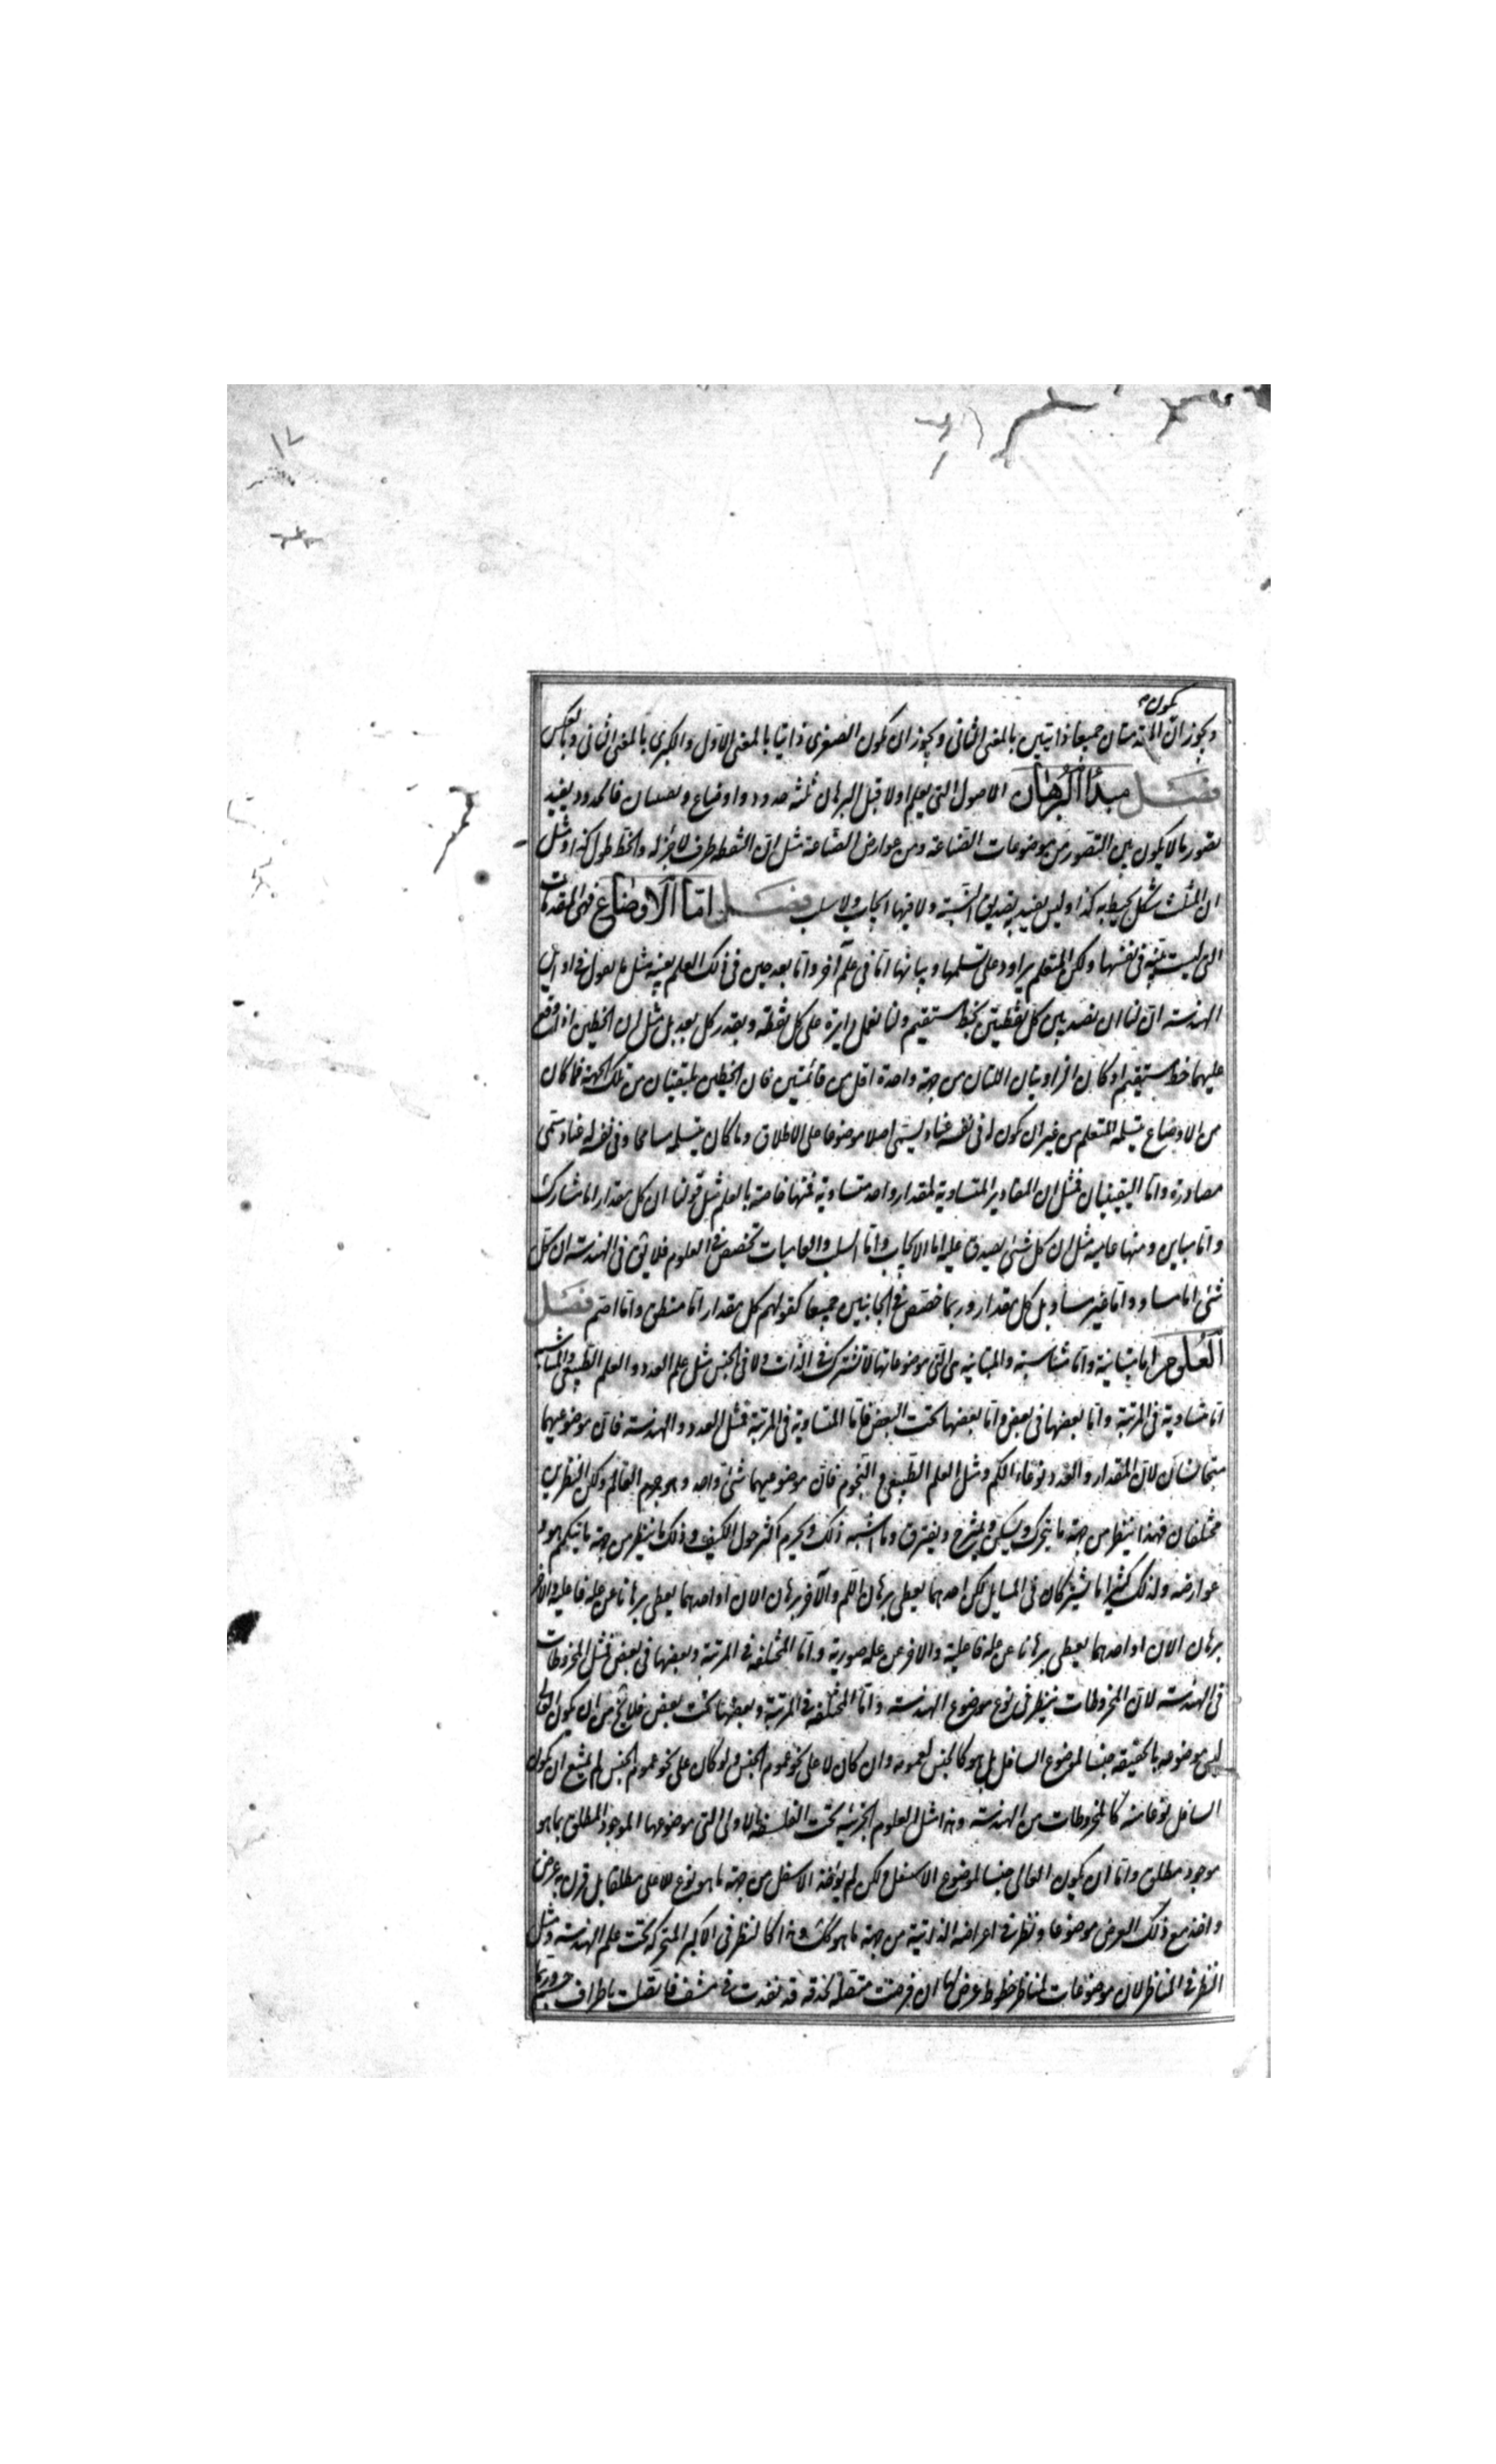 ١٧
يكون
ويجوز ان المقدمتان جميعا ذاتيتين بالمعنى الثانى ويجوز ان يكون الصغرى ذاتيا بالمعنى الاول والكبرى بالمعنى الثانى وبالعكس
فصل مبدأ البرهان الاصول التى يعلم اولا قبل البرهان ثلثه حدود واوضاع و فالحدود يفيد
تصور ما لا يكون بين التصور من موضوعات الصناعة ومن عوارض الصناعة مثل ان النقطه طرف لا جزء له والخط طول كذا ومثل
ان المثلث شكل يحيط به كذا وليس يفيد به تصديق البتة ولا فيها ايجاب ولا سلب فصل اما الاوضاع فهى المقدمات
التى ليست بينة فى نفسها ولكن المتعلم يراود على تسلمها وبيانها اما فى علم آخر واما بعد حين فى ذلك العلم بعينه مثل ما نقول فى اوائل
الهندسه ان لنا ان نصل بين كل نقطتين بخط مستقيم ولنا نعمل دايرة على كل نقطة وبقدر كل بعد بل مثل ان الخطين اذا وقع
عليهما خط مستقيم وكان الزاويتان اللتان من جهة واحدة اقل من قائمتين فان الخطين يلتقيان من تلك الجهة فما كان
من الاوضاع يتسلمه المتعلم من غير ان يكون له فى نفسه عناد يسمى اصلا موضوعا على الاطلاق وما كان يتسلمه مسامحا وفى نفسه له عناد يسمى
مصادرة واما اليقينيات فمثل ان المقادير المتساوية لمقدار واحد متساوية فمنها خاصة بالعلم مثل قولنا ان كل مقدار اما مشارك
واما مباين ومنها عامية مثل ان كل شئ يصدق عليه اما الايجاب واما السلب والعاميات تخصص فى العلوم فلا يقال فى الهندسة ان كل
شئ اما مساو واما غير مساو بل كل مقدار وربما خصص فى الجانبين جميعا كقولهم كل مقدار اما منطق واما اصم فصل
العلوم اما متباينة واما متناسبة والمتباينه هى التى موضوعاتها لا تشترك فى الذات ولا فى الجنس مثل علم العدد والعلم الطبيعى والمتناسبة
اما متساوية فى المرتبة واما بعضها فى بعض واما بعضها تحت البعض فاما المتساوية فى المرتبة فمثل العدد والهندسة فان موضوعيهما
متجانسان لان المقدار والعدد نوعا الكم ومثل العلم الطبيعى والنجوم فان موضوعيهما شئ واحد وهو جرم العالم ولكن النظرين
مختلفان فهذا ينظر من جهة ما يتحرك ويسكن ويمتزج ويفترق وما اشبه ذلك ويحرم اكثر حول الكيف وذلك ينظر من جهة ما يتكمم هو و
عوارضه ولذلك كثيرا ما يشتركان فى المسايل لكن احدهما يعطى برهان اللم والآخر برهان الان او احدهما يعطى برهانا عن علة فاعلية والاخر
برهان الان او احدهما يعطى برهانا عن علة فاعلية والاخر عن علة صورية واما المختلفة فى المرتبة وبعضها فى بعض فمثل المخروطات
فى الهندسه لان المخروطات ينظر فى نوع موضوع الهندسه واما المختلفه فى المرتبة وبعضها تحت بعض فلا يخ من ان يكون العالى
ليس موضوعه بالحقيقه جنسا لموضوع السافل بل هو كالجنس لعمومه وان كان لا على نحو عموم الجنس ولو كان على نحو عموم الجنس لم يمتنع ان يكون
السافل نوعا منه كالمخروطات من الهندسه وهذا مثل العلوم الجزئية تحت الفلسفة الاولى التى موضوعها الموجود المطلق بما هو
موجود مطلق واما ان يكون العالى جنسا لموضوع الاسفل ولكن لم يؤخذ الاسفل من جهة ما هو نوع للاعلى مطلقا بل قرن به عرض
واخذ مع ذلك العرض موضوعا ونظر فى اعراضه الذاتية من جهة ما هو كك وهذا كالنظر فى الاكر المتحركة تحت علم الهندسه ومثل
النظر فى المناظر لان موضوعات المناظر خطوط عرض لها ان فرضت متصلة بحدقه قد نفدت فى مشف فاتصلت باطراف جسم